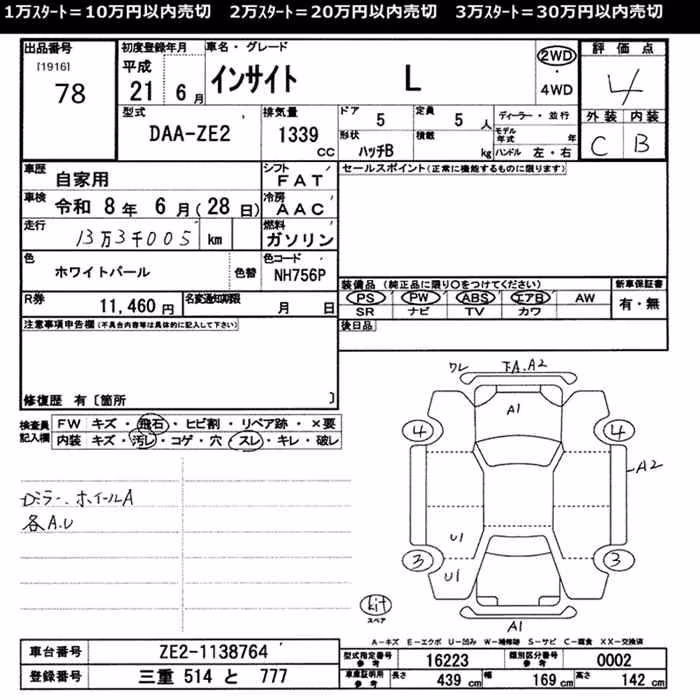 1万スタート＝10万円以内売切　2万スタート＝20万円以内売切　3万スタート＝30万円以内売切
出品番号　初度登録年月　車名・グレード　評価点
[1916]
78　平成 21 6月　インサイト　L　2WD・4WD　4
型式　排気量　ドア 5　定員 5人　ディーラー・並行　外装　内装
DAA-ZE2　1339cc　形状 ハッチB　積載 kg　モデル年式 年　ハンドル 左・右　C　B
車歴　自家用　シフト FAT　セールスポイント(正常に機能するものに限ります)
車検　令和 8年 6月(28日)　冷房 AAC
走行　13万3千005 km　燃料 ガソリン
色　ホワイトパール　色替　色コード NH756P
装備品(純正品に限り○をつけてください)　新車保証書
PS　PW　ABS　エアB　AW　有・無
SR　ナビ　TV　カワ
R券　11,460円　名変通知期限　月　日
注意事項申告欄(不具合内容等は具体的に記入して下さい)　後日品
修復歴 有〔箇所　〕
検査員記入欄　FW　キズ・飛石・ヒビ割・リペア跡・×要
内装　キズ・汚レ・コゲ・穴・スレ・キレ・破レ
ワレ　下A.A2
A1
4　4
A2
ドミラー.ホイールA
各A.U
U1
3　3
U1
kit
スペア
A1
A－キズ　E－エクボ　U－凹み　W－補修跡　S－サビ　C－腐食　XX－交換済
車台番号　ZE2-1138764　型式指定番号 参考　16223　類別区分番号 参考　0002
登録番号　三重 514 と 777　車庫証明用 参考　長さ 439 cm　幅 169 cm　高さ 142 cm